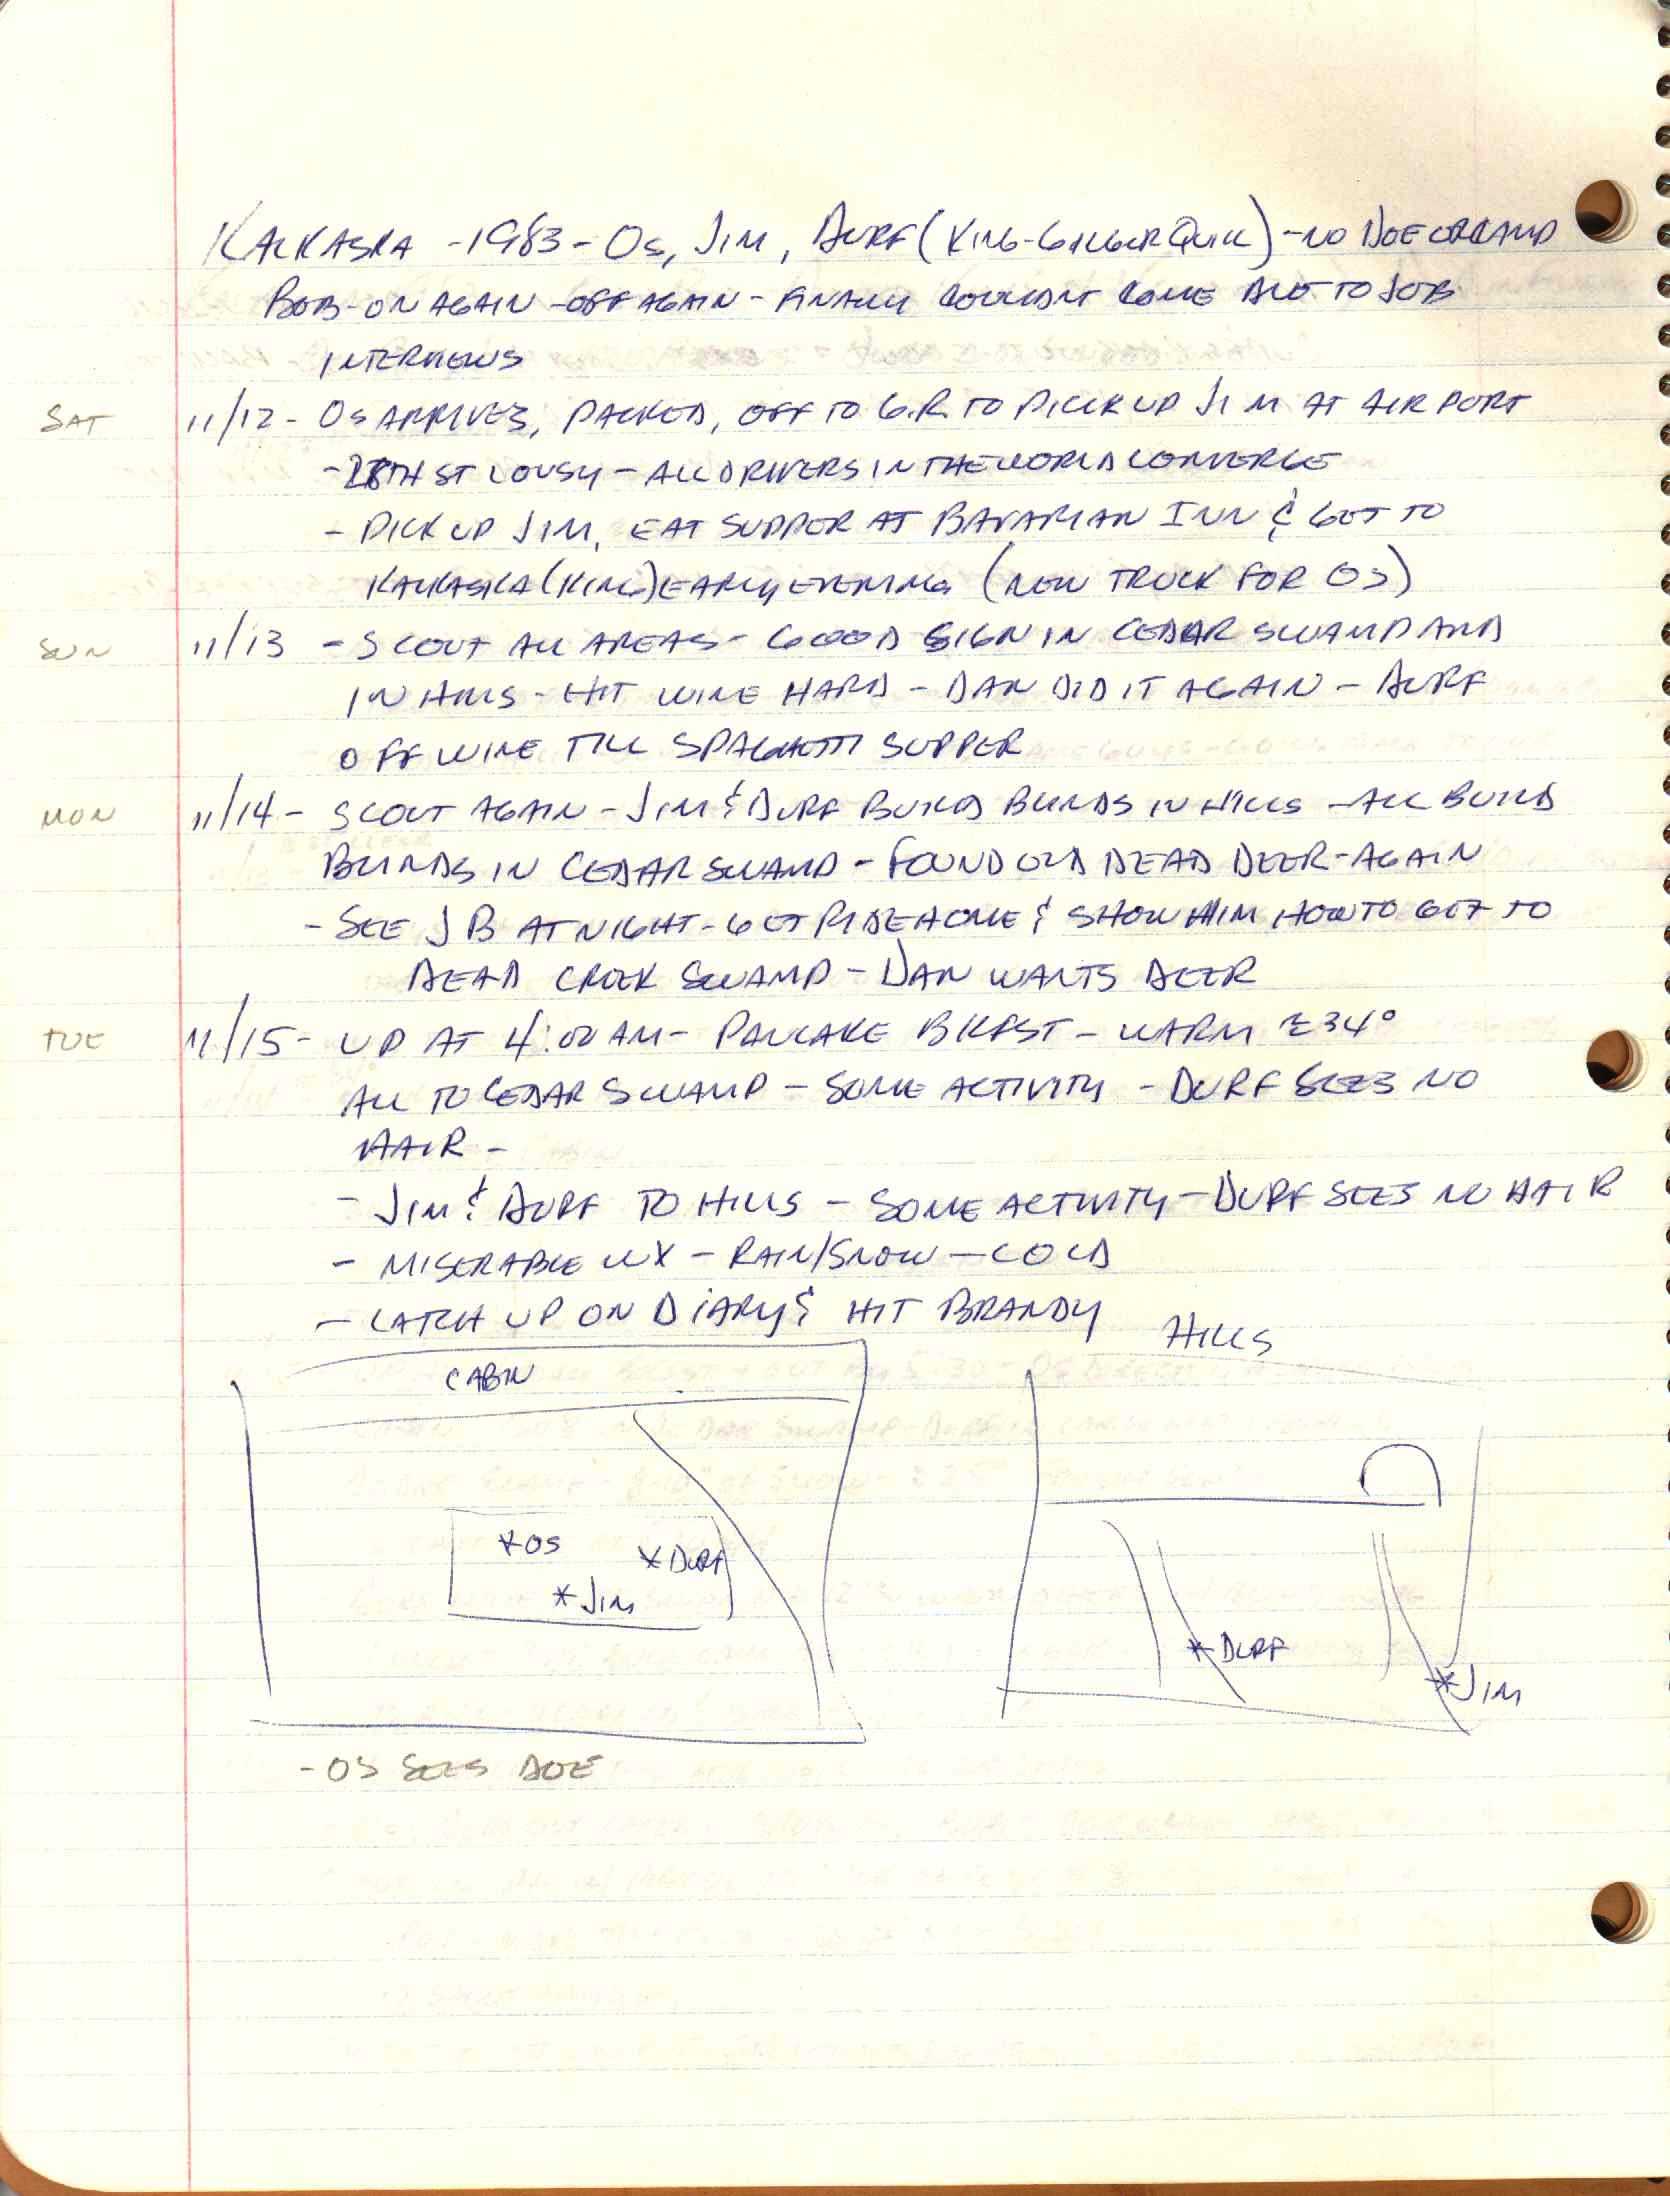 KALKASKA - 1983 - OS, JIM, DURF (KING- QUILL) - NO DOE OR RAND
BOB - ON AGAIN - OFF AGAIN - FINALLY COULDNT COME DUE TO JOB
INTERVIEWS
SAT 11/12 - OS ARRIVES, PACKED, OFF TO G.R. TO PICK UP JIM AT AIRPORT
- 28TH ST LOUSY - ALL DRIVERS IN THE WORLD CONVERGE
- PICK UP JIM, EAT SUPPER AT BAVARIAN INN & GET TO
KALKASKA (KING) EARLY EVENING (NEW TRUCK FOR OS)
SUN 11/13 - SCOUT ALL AREAS - GOOD SIGN IN CEDAR SWAMP AND
IN HILLS - HIT WINE HARD - DAN DID IT AGAIN - DURF
OFF WINE TILL SPAGHETTI SUPPER
MON 11/14 - SCOUT AGAIN - JIM & DURF BUILD BLINDS IN HILLS - ALL BUILD
BLINDS IN CEDAR SWAMP - FOUND OLD DEAD DEER - AGAIN
- SEE JB AT NIGHT - GET RIDE HOME & SHOW HIM HOW TO GET TO
DEAD CREEK SWAMP - DAN WANTS DEER
TUE 11/15 - UP AT 4:00 AM - PANCAKE BKFST - WARM ≈ 34°
ALL TO CEDAR SWAMP - SOME ACTIVITY - DURF SEES NO
HAIR -
- JIM & DURF TO HILLS - SOME ACTIVITY - DURF SEES NO HAIR
- MISERABLE WX - RAIN/SNOW - COLD
- CATCH UP ON DIARY & HIT BRANDY
HILLS
CABIN
*OS
*DURF
*JIM
*DURF
*JIM
- OS SEES DOE